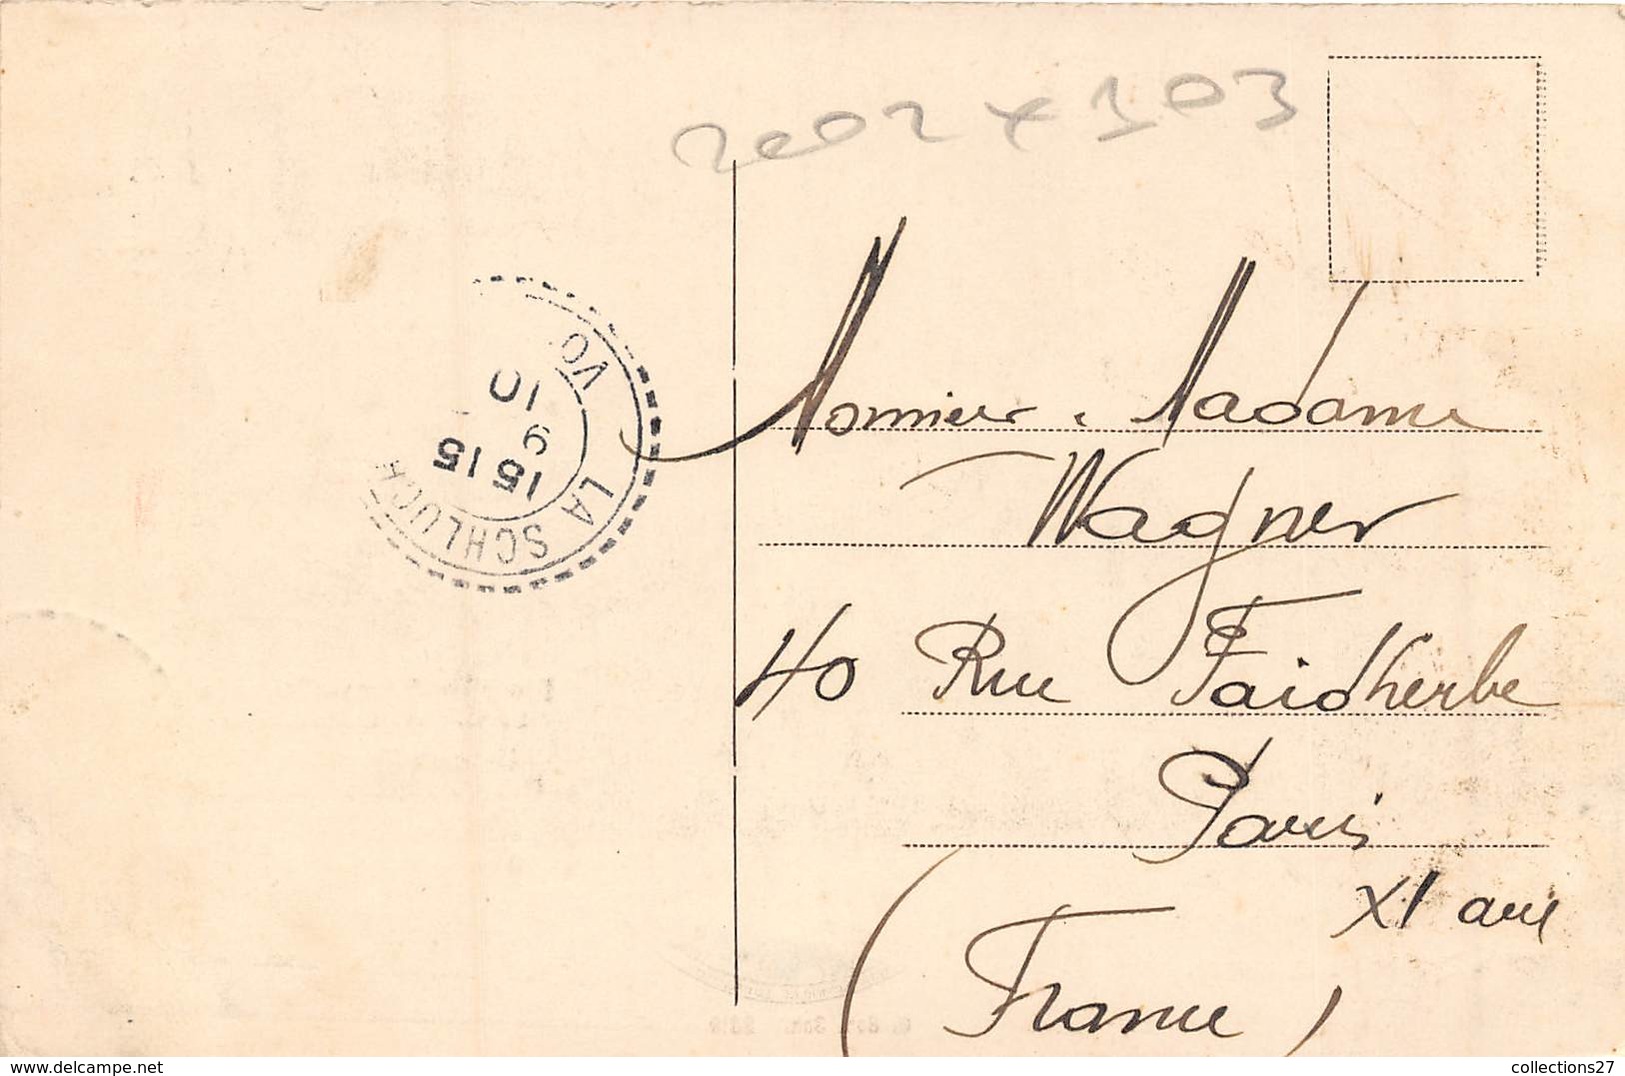 2002 x 103
Monsieur & Madame
Wagner
40 Rue Faidherbe
Paris
XI arr
(France)
LA SCHLUCHT VO
15 15
9
10
delcampe.net
collections27